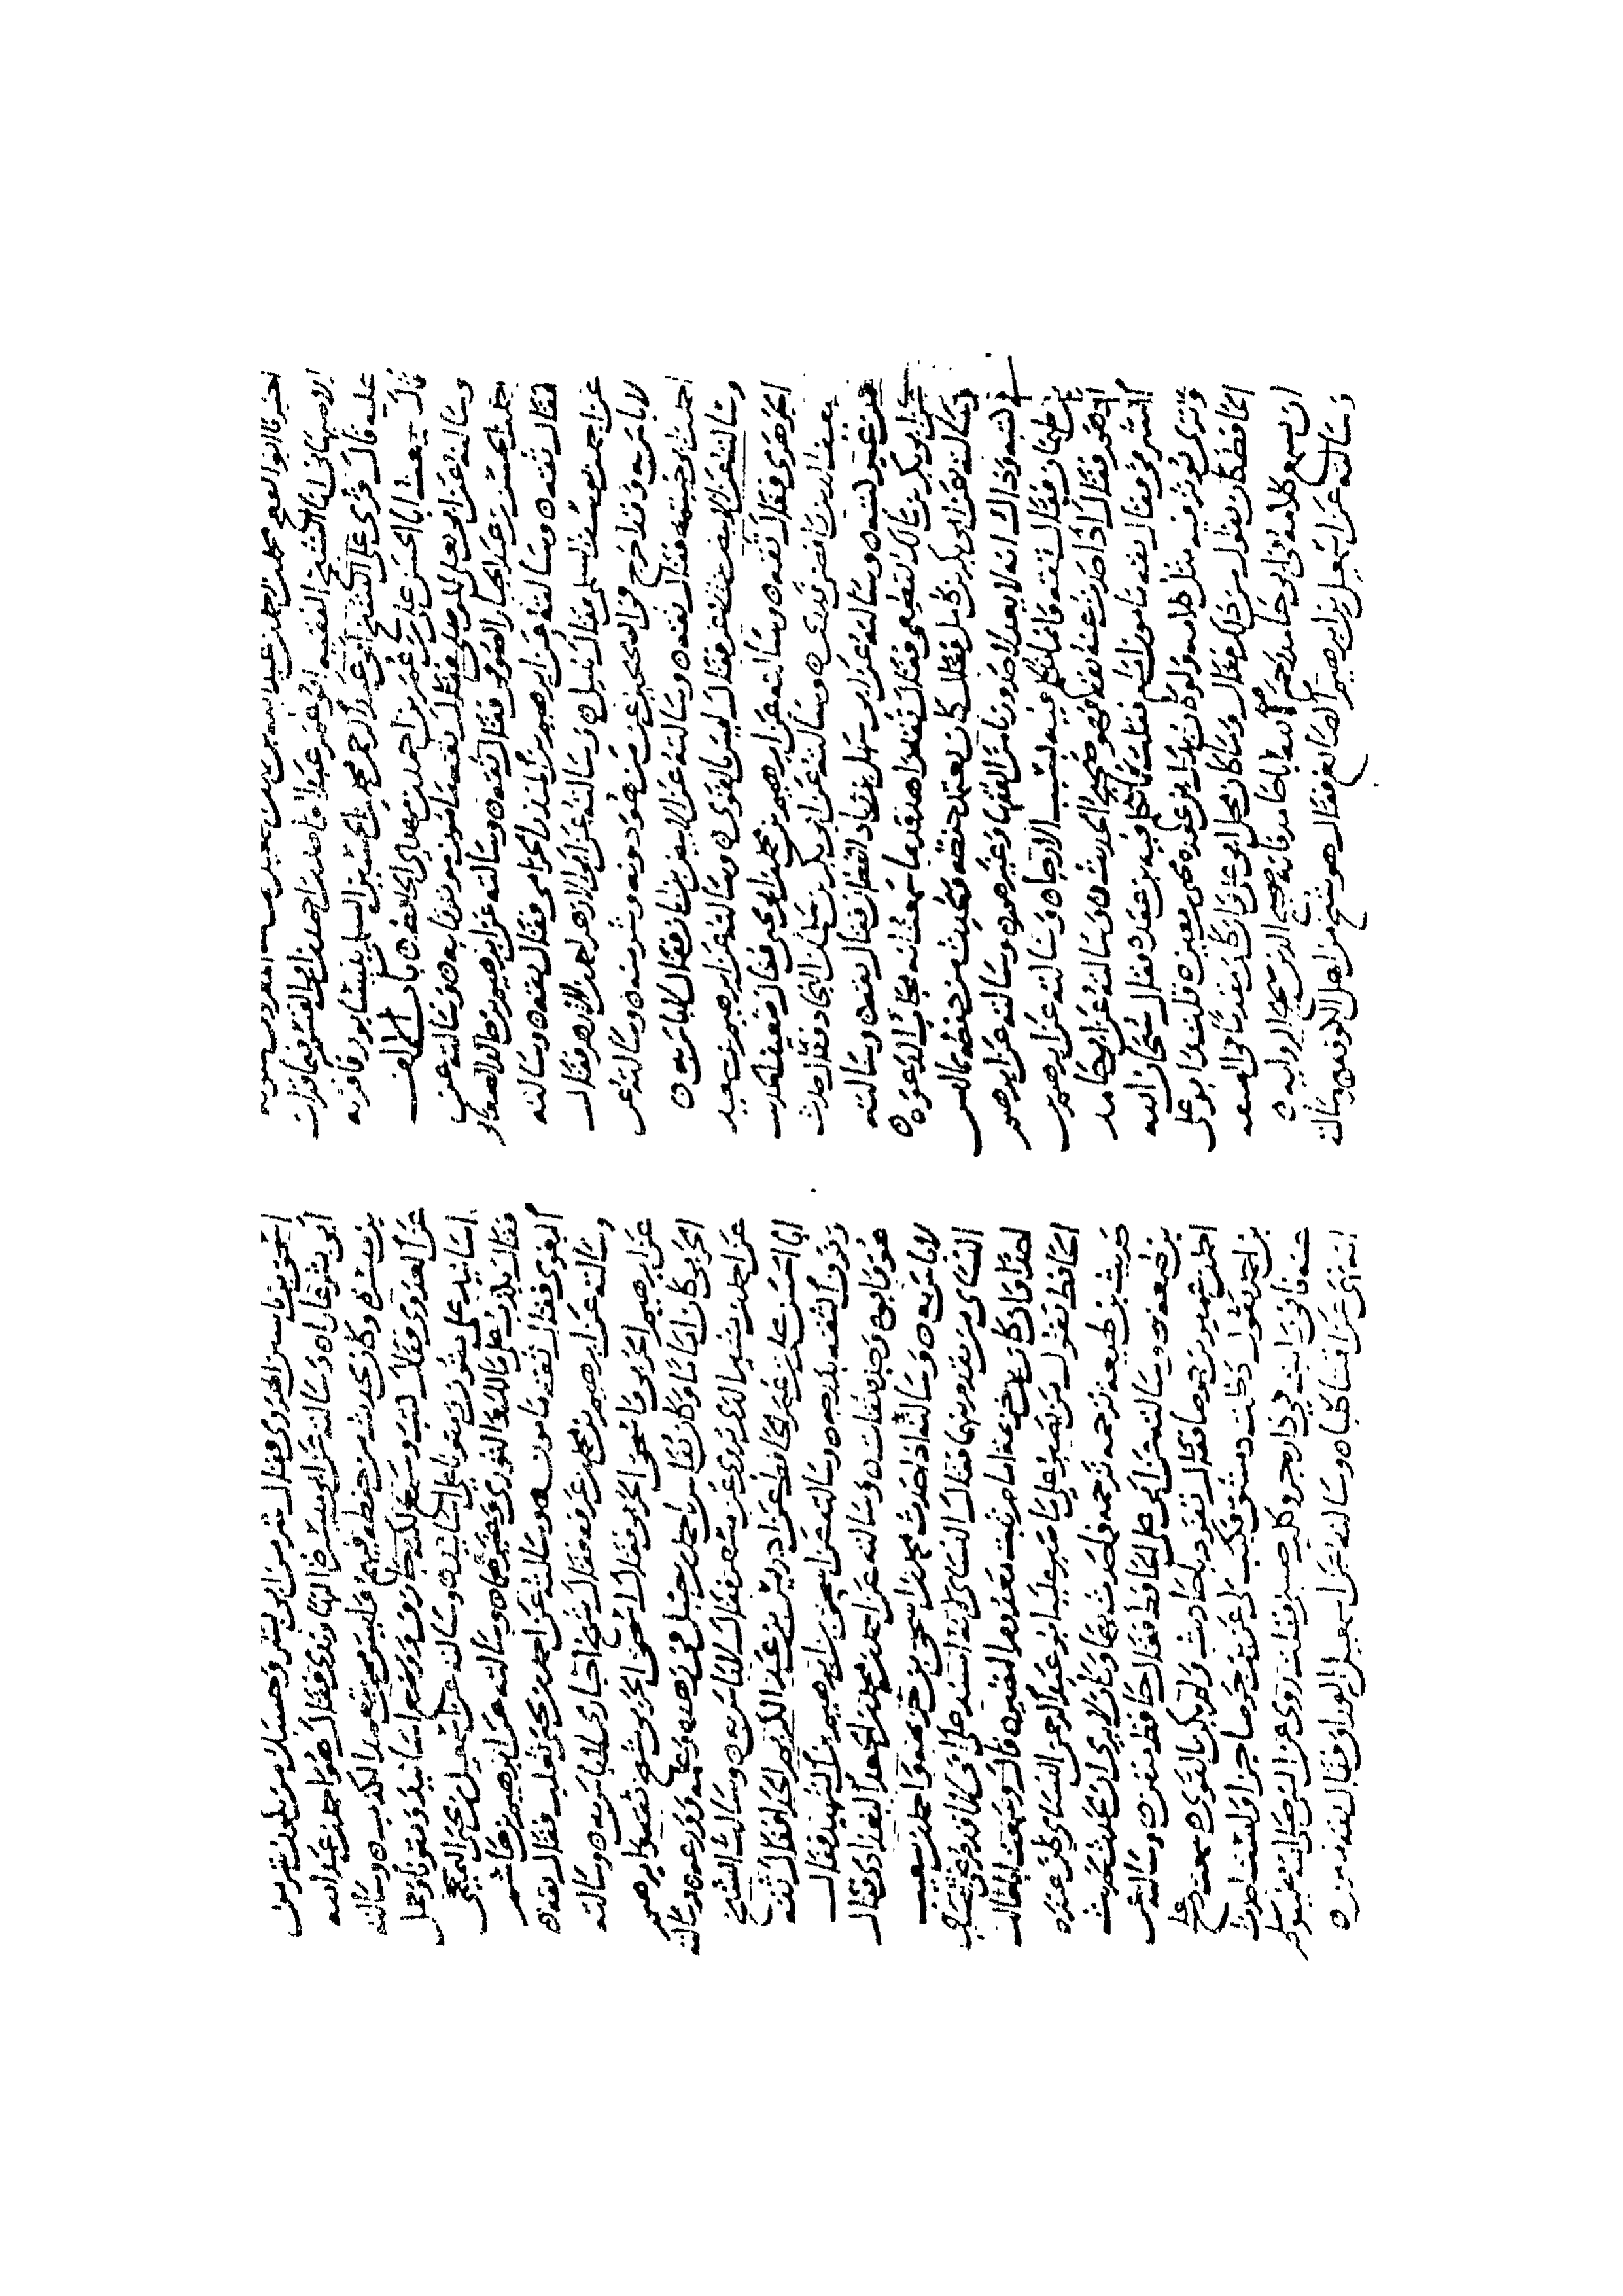 اخبرنا ابو الفتح محمد بن احمد بن عبد الله بن المعروف بسمويه
الاصبهاني انا الشيخ الفقيه ابو عمر عبد الواحد بن احمد بن ابي القسم فيما قرات
عليه قال قرئ على الشيخ ابي عبد الرحمن محمد بن الحسين السلمي بنيسابور فاقر به
قال سمعت ابا الحسن علي بن عمر بن احمد بن مهدي الحافظ ه باب الالف
وسالته عن ابي يعلى الموصلي فقال ثقه مامون موثوق به ه وسالته عن
احمد بن الحسن بن عبد الجبار الصوفي فقال ثقه ه وسالته عن ابرهيم بن
فقال ثقه ه وسالته عن ابرهيم بن المنذر الحزامي فقال ثقه ه وسالته
عن احمد بن يوسف السلمي فقال نبيل ه وسالته عن ابي الازهر احمد بن الازهر فقال
لا باس به وقد اخرج في الصحيح عن من هو دونه وشر منه ه وسالته عن
احمد بن ابي خيثمه فقال ثقه ه وسالته عن الابيض بن ابان فقال لا باس به ه
وسالته عن الابيض بن الاغر فقال ليس بالقوي ه وسالته عن ابرهيم بن سعيد
الجوهري فقال ثقه ه وسالته عن ابرهيم بن محمد بن ابي يحيى فقال ضعيف الحديث
ضعيف الدين رافضي قدري ه وسالته عن ابي بكر بن سلمان النجاد فقال حدث
من غير كتبه ه وسالته عن ابي سهل بن زياد القطان فقال ثقه ه وسالته
عن ابي بكر بن مالك القطيعي فقال ثقه زاهد قديما سمعت انه مجاب الدعوه ه
وسالته عن ابي بكر بن كامل فقال كان يعتمد حفظه ويحدث من حفظه بما ليس
في كتبه وذاك انه لا يعد لاحد وزنا من الفقها وغيرهم ه وسالته عن ابرهيم
بن طهمان فقال ثقه فانما تكلم فيه لسبب الارجاء ه وسالته عن ابرهيم بن
ادهم فقال اذا حدث عنه ثقه فهو صحيح الحديث ه وسالته عن ابي حامد
الشرقي فقال ثقه مامون امام فقلت لم تكلم فيه بن عقده فقال سبحان الله
وترى يوثر فيه مثل كلامه ولو كان بدل بن عقده يحيى بن معين ه قلت وابو علي
الحافظ كان يقول من ذلك فقال وما كان محل ابي علي وان كان مقدما في الصنعه
ان يسمع كلامه في ابي حامد رحم الله ابا حامد فانه صحيح الدين صحيح الروايه ه
وسالته عن اسمعيل بن ابرهيم الصايغ فقال هو شيخ من اهل الكوفه ه وسالته
اسحق بن ياسين الهروي فقال شر من ابي بشر وحسبك من يكون شر من
ابي بشر عارا ه وسالته عن ابي ميسره النهاوندي فقال هو احمد بن عبد الله
بن ميسره وكان يحدث من حفظه فيهم فليس ممن يتعمد الكذب ه وسالته
عن العدوي فقال كتب وسمع لكنه وضع اسانيد ومتونا وعمل
اسانيد على متون ومتونا على اسانيد ه وسالته عن اسمعيل بن يحيى التيمي
فقال يكذب على مالك والثوري وغيرهما ه وسالته عن ابرهيم بن هاشم
البغوي فقال ثقه مامون ه وسالته عن احمد بن يحيى ثعلب فقال ثقه ه
وسالته عن ابرهيم بن محمد بن عرفه فقال شيخ اخباري لا باس به ه وسالته
عن ابرهيم الحربي واسحق الحربي فقال اسحق الحربي شيخ ثقه وابرهيم
الحربي كان اماما وكان يقاس باحمد بن حنبل في زهده وعلمه وورعه ه وسالته
عن احمد بن بشير الذي يروي عن مسعر فقال لا باس به ه وسالت الشيخ
ابا الحسن علي بن عمر الحافظ عن ادريس بن عبد الكريم الحداد فقال ثقه
وفوق الثقه بدرجه ه وسالته عن اسحق بن ابرهيم بن الشهيد فقال
هو وابوه وجده ثقات ه وسالته عن احمد بن محمد بن الجعد البغدادي فقال
لا باس به ه وسالته اذا حدث محمد بن اسحق بن خزيمه واحمد بن شعيب
النسائي من تقدم منهما فقال النسائي لانه اسند على اني لا اقدم على
احدا وان كان بن خزيمه اماما ثبتا معدوم النظير ه قال وسمعت ابا طالب
الحافظ يقول من يصبر على ما صبر عليه ابو عبد الرحمن النسائي كان عنده
حديث بن لهيعه ترجمه ترجمه فما حدث بها وكان لا يرى ان يحدث بحديث
بن لهيعه ه وسالته عن ابي علي الحافظ فقال حافظ متقن ه وسالته عن
احمد بن عمير بن جوصا فقال تفرد باحاديث ولم يكن بالقوي ه سمعت دعلج
بن احمد يقول دخلت دمشق فكتب لي عن بن جوصا جزا ولست احدث
عنه فاني رايت في داره جرو كلب صيني فقلت روي عن النبي صلى الله عليه وسلم
انه نهى عن اقتنا كلب ه وسالته عن اسمعيل الوراق فقال ثقه